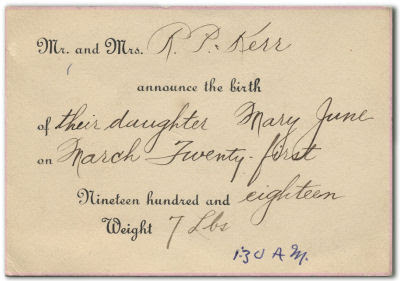 Mr. and Mrs. R. P. Kerr
announce the birth
of their daughter Mary June
on March Twenty-first
Nineteen hundred and eighteen
Weight 7 Lbs
1:30 A.M.